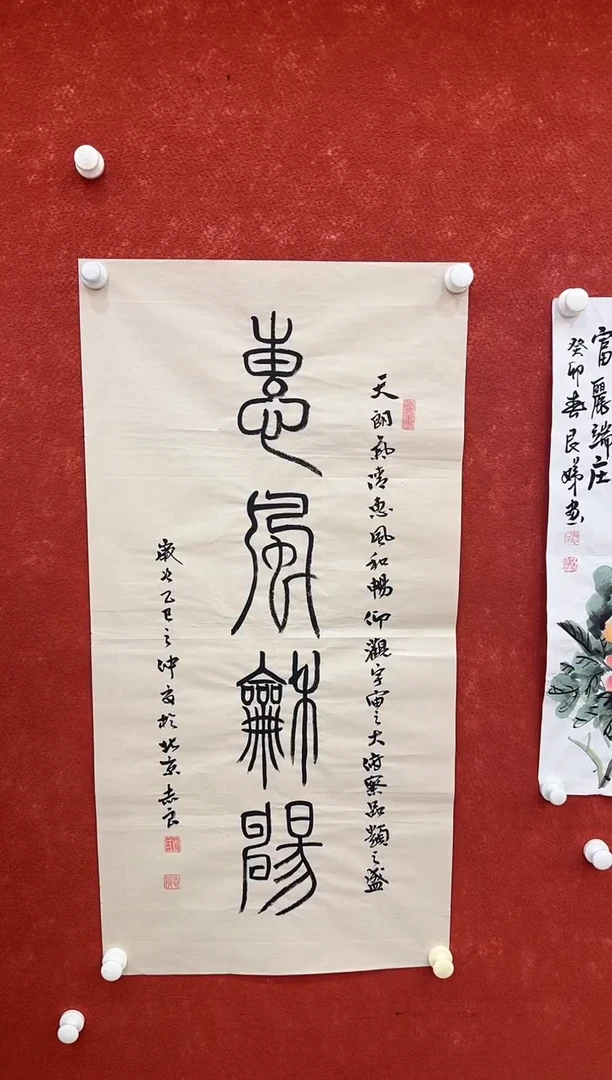 富麗端庄
癸卯春良娣画
天朗氣清惠風和暢仰觀宇宙之大俯察品類之盛
惠風龢暢
歲次乙巳之仲夏於北京